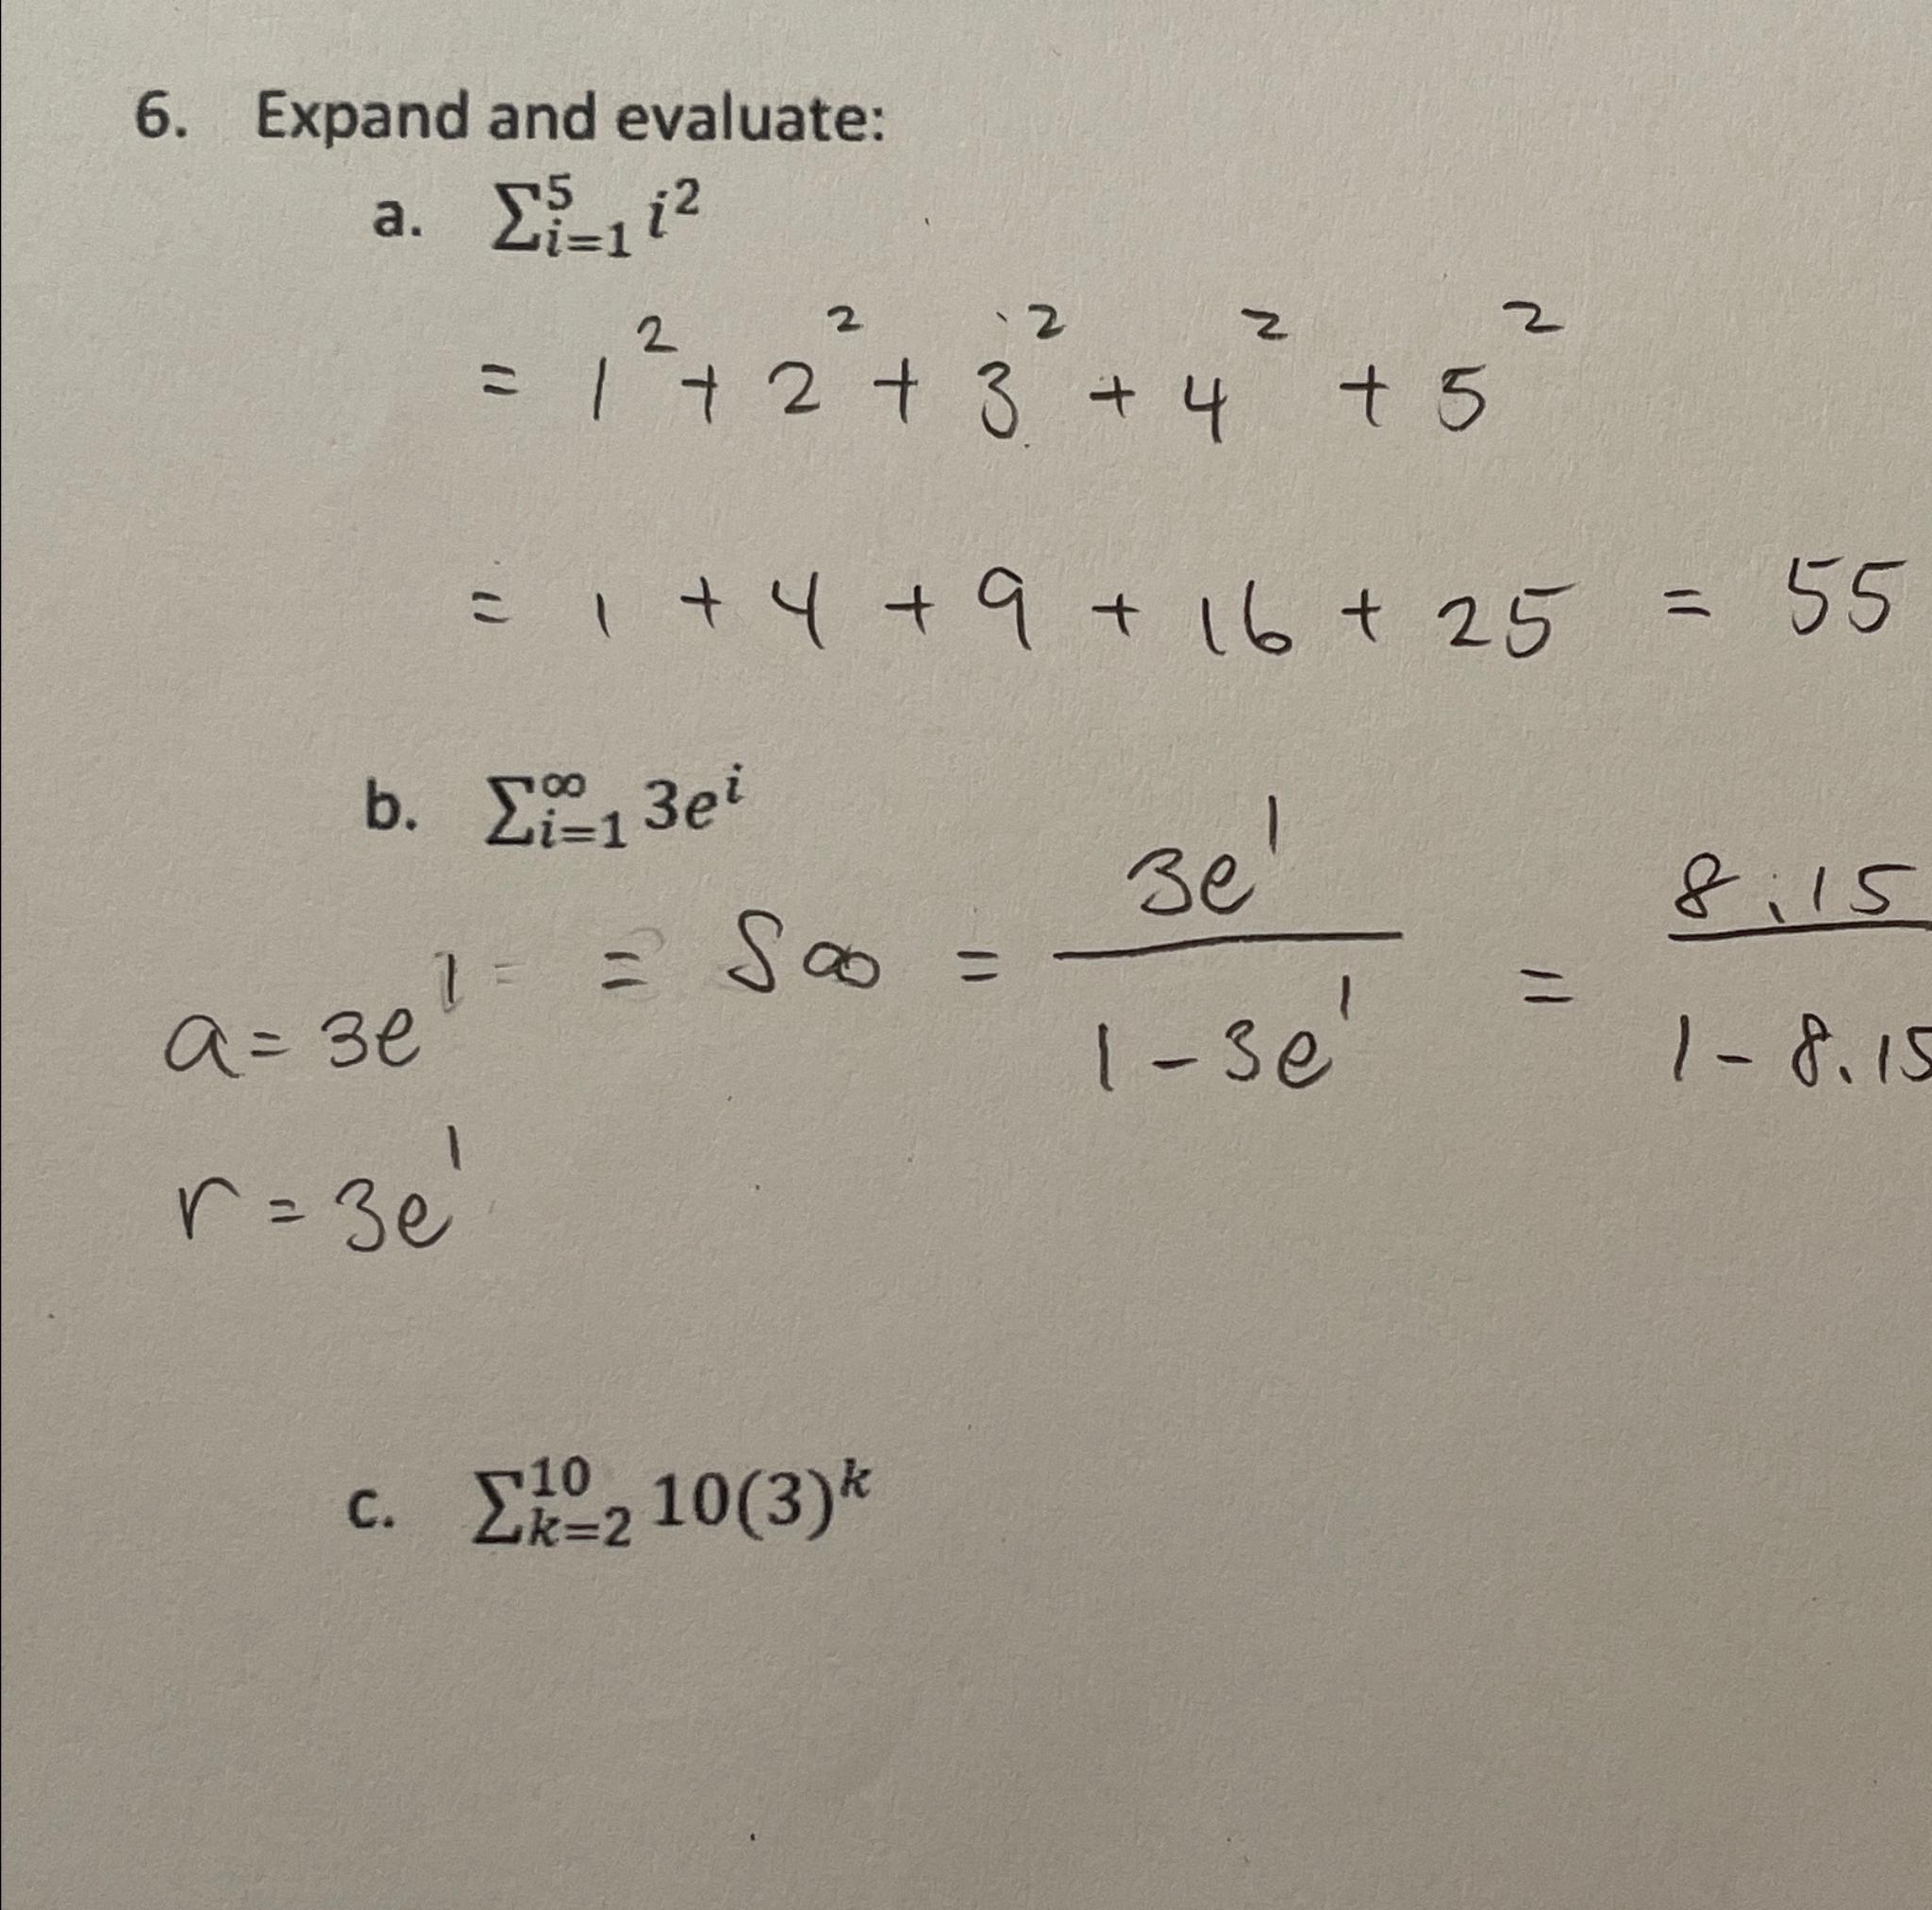 6. Expand and evaluate:
a. ∑_{i=1}^{5} i²
= 1² + 2² + 3² + 4² + 5²
= 1 + 4 + 9 + 16 + 25 = 55
b. ∑_{i=1}^{∞} 3e^i
a = 3e^1 = = S∞ = 3e^1 / (1 - 3e^1) = 8.15 / (1 - 8.15
r = 3e^1
c. ∑_{k=2}^{10} 10(3)^k